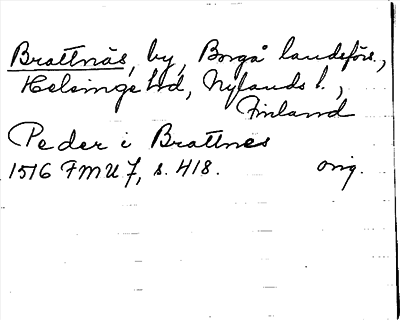 Brattnäs, by, Borgå landsförs.,
Helsinge hd, Nylands l.,
Finland
Peder i Brattnes
1516 FMU 7, s. 418. orig.